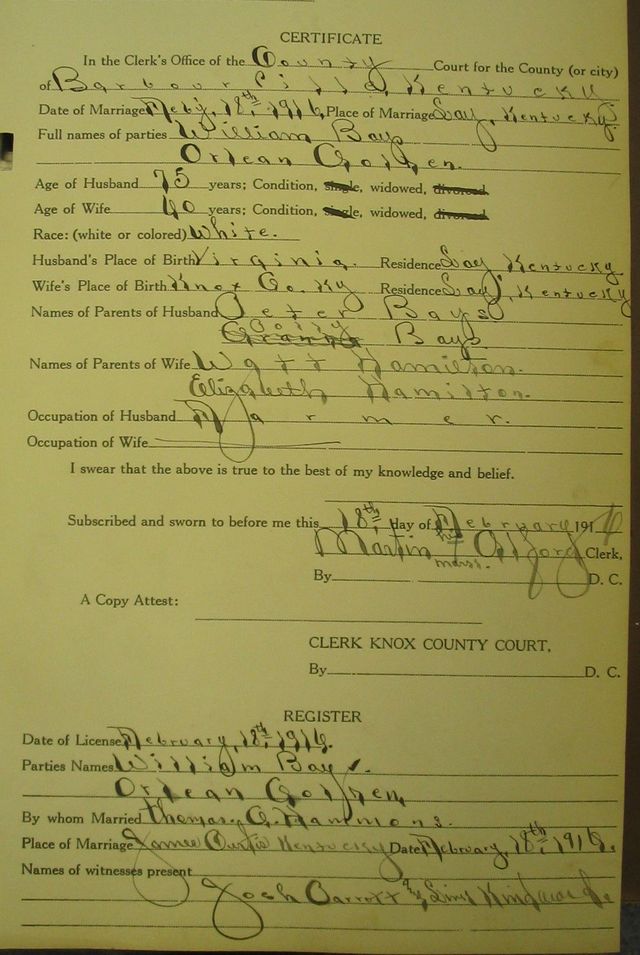 CERTIFICATE
In the Clerk's Office of the County Court for the County (or city)
of Barbourville, Kentucky
Date of Marriage Feby, 18th, 1916, Place of Marriage Lay, Kentucky
Full names of parties William Bays
Orlean
Age of Husband 75 years; Condition, single, widowed, divorced
Age of Wife 40 years; Condition, single, widowed, divorced
Race: (white or colored) White.
Husband's Place of Birth Virginia. Residence Lay Kentucky
Wife's Place of Birth Knox Co. Ky Residence Lay, Kentucky
Names of Parents of Husband Peter Bays
Bays
Names of Parents of Wife Watt Hamilton.
Elizabeth Hamilton.
Occupation of Husband Farmer.
Occupation of Wife
I swear that the above is true to the best of my knowledge and belief.
Subscribed and sworn to before me this 18th, day of February 1916
Martin his Clerk,
mark.
By D. C.
A Copy Attest:
CLERK KNOX COUNTY COURT,
By D. C.
REGISTER
Date of License February, 18th, 1916.
Parties Names William Bays.
Orlean
By whom Married Thomas G. Hammons.
Place of Marriage Kentucky Date February, 18th, 1916.
Names of witnesses present
Josh